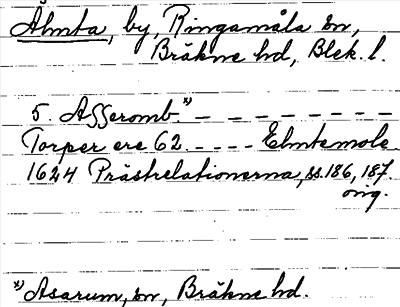 Älmta, by, Ringamåla sn,
Bräkne hd, Blek. l.
5. Asseromb *) — — — — — — —
Torper ere 62 - - - - Elmtemole
1624 Prästrelationerna, ss. 186, 187.
orig.
*) Asarum, sn, Bräkne hd.